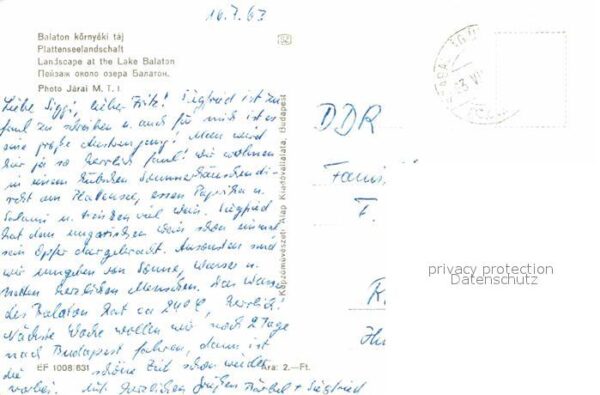 16.7.63
Balaton környéki táj
Plattenseelandschaft
Landscape at the Lake Balaton
Пейзаж около озера Балатон.
Photo Járai M. T. I.
Liebe Siggi, lieber Fritz! Siegfried ist zu
faul zu schreiben u. auch für mich ist es
eine große Anstrengung! Man wird
hier ja so herrlich faul! Wir wohnen
in einem hübschen Sommerhäuschen di-
rekt am Plattensee, essen Paprika u.
Salami u. trinken viel Wein. Siegfried
hat dem ungarischen Wein schon einmal
sein Opfer dargebracht. Ansonsten sind
wir umgeben von Sonne, Wasser u.
netten herzlichen Menschen. Das Wasser
des Balaton hat ca 24°C, herrlich.
Nächste Woche wollen wir noch 2 Tage
nach Budapest fahren, dann ist
die schöne Zeit schon wieder
vorbei. Mit herzlichen Grüßen Bärbel + Siegfried
EF 1008 631
Ára: 2.-Ft.
Képzőművészeti Alap Kiadóvállalata, Budapest
DDR
Fami
F.
privacy protection
Datenschutz